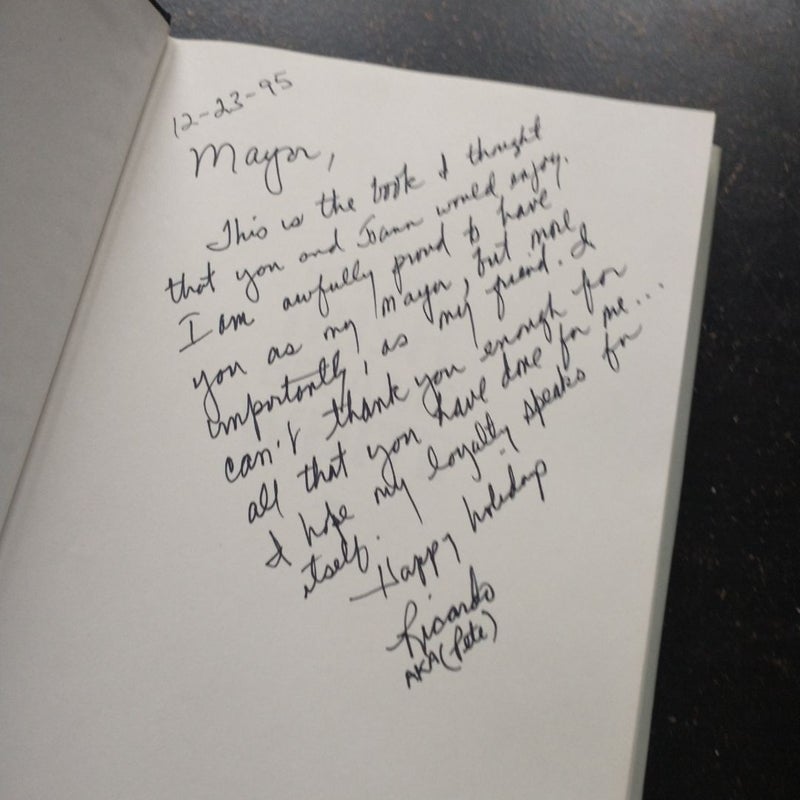 12-23-95
Mayor,
This is the book I thought
that you and Joann would enjoy.
I am awfully proud to have
you as my Mayor, but more
importantly, as my friend. I
can't thank you enough for
all that you have done for me...
I hope my loyalty speaks for
itself.
Happy holidays
Ricardo
AKA (Pete)